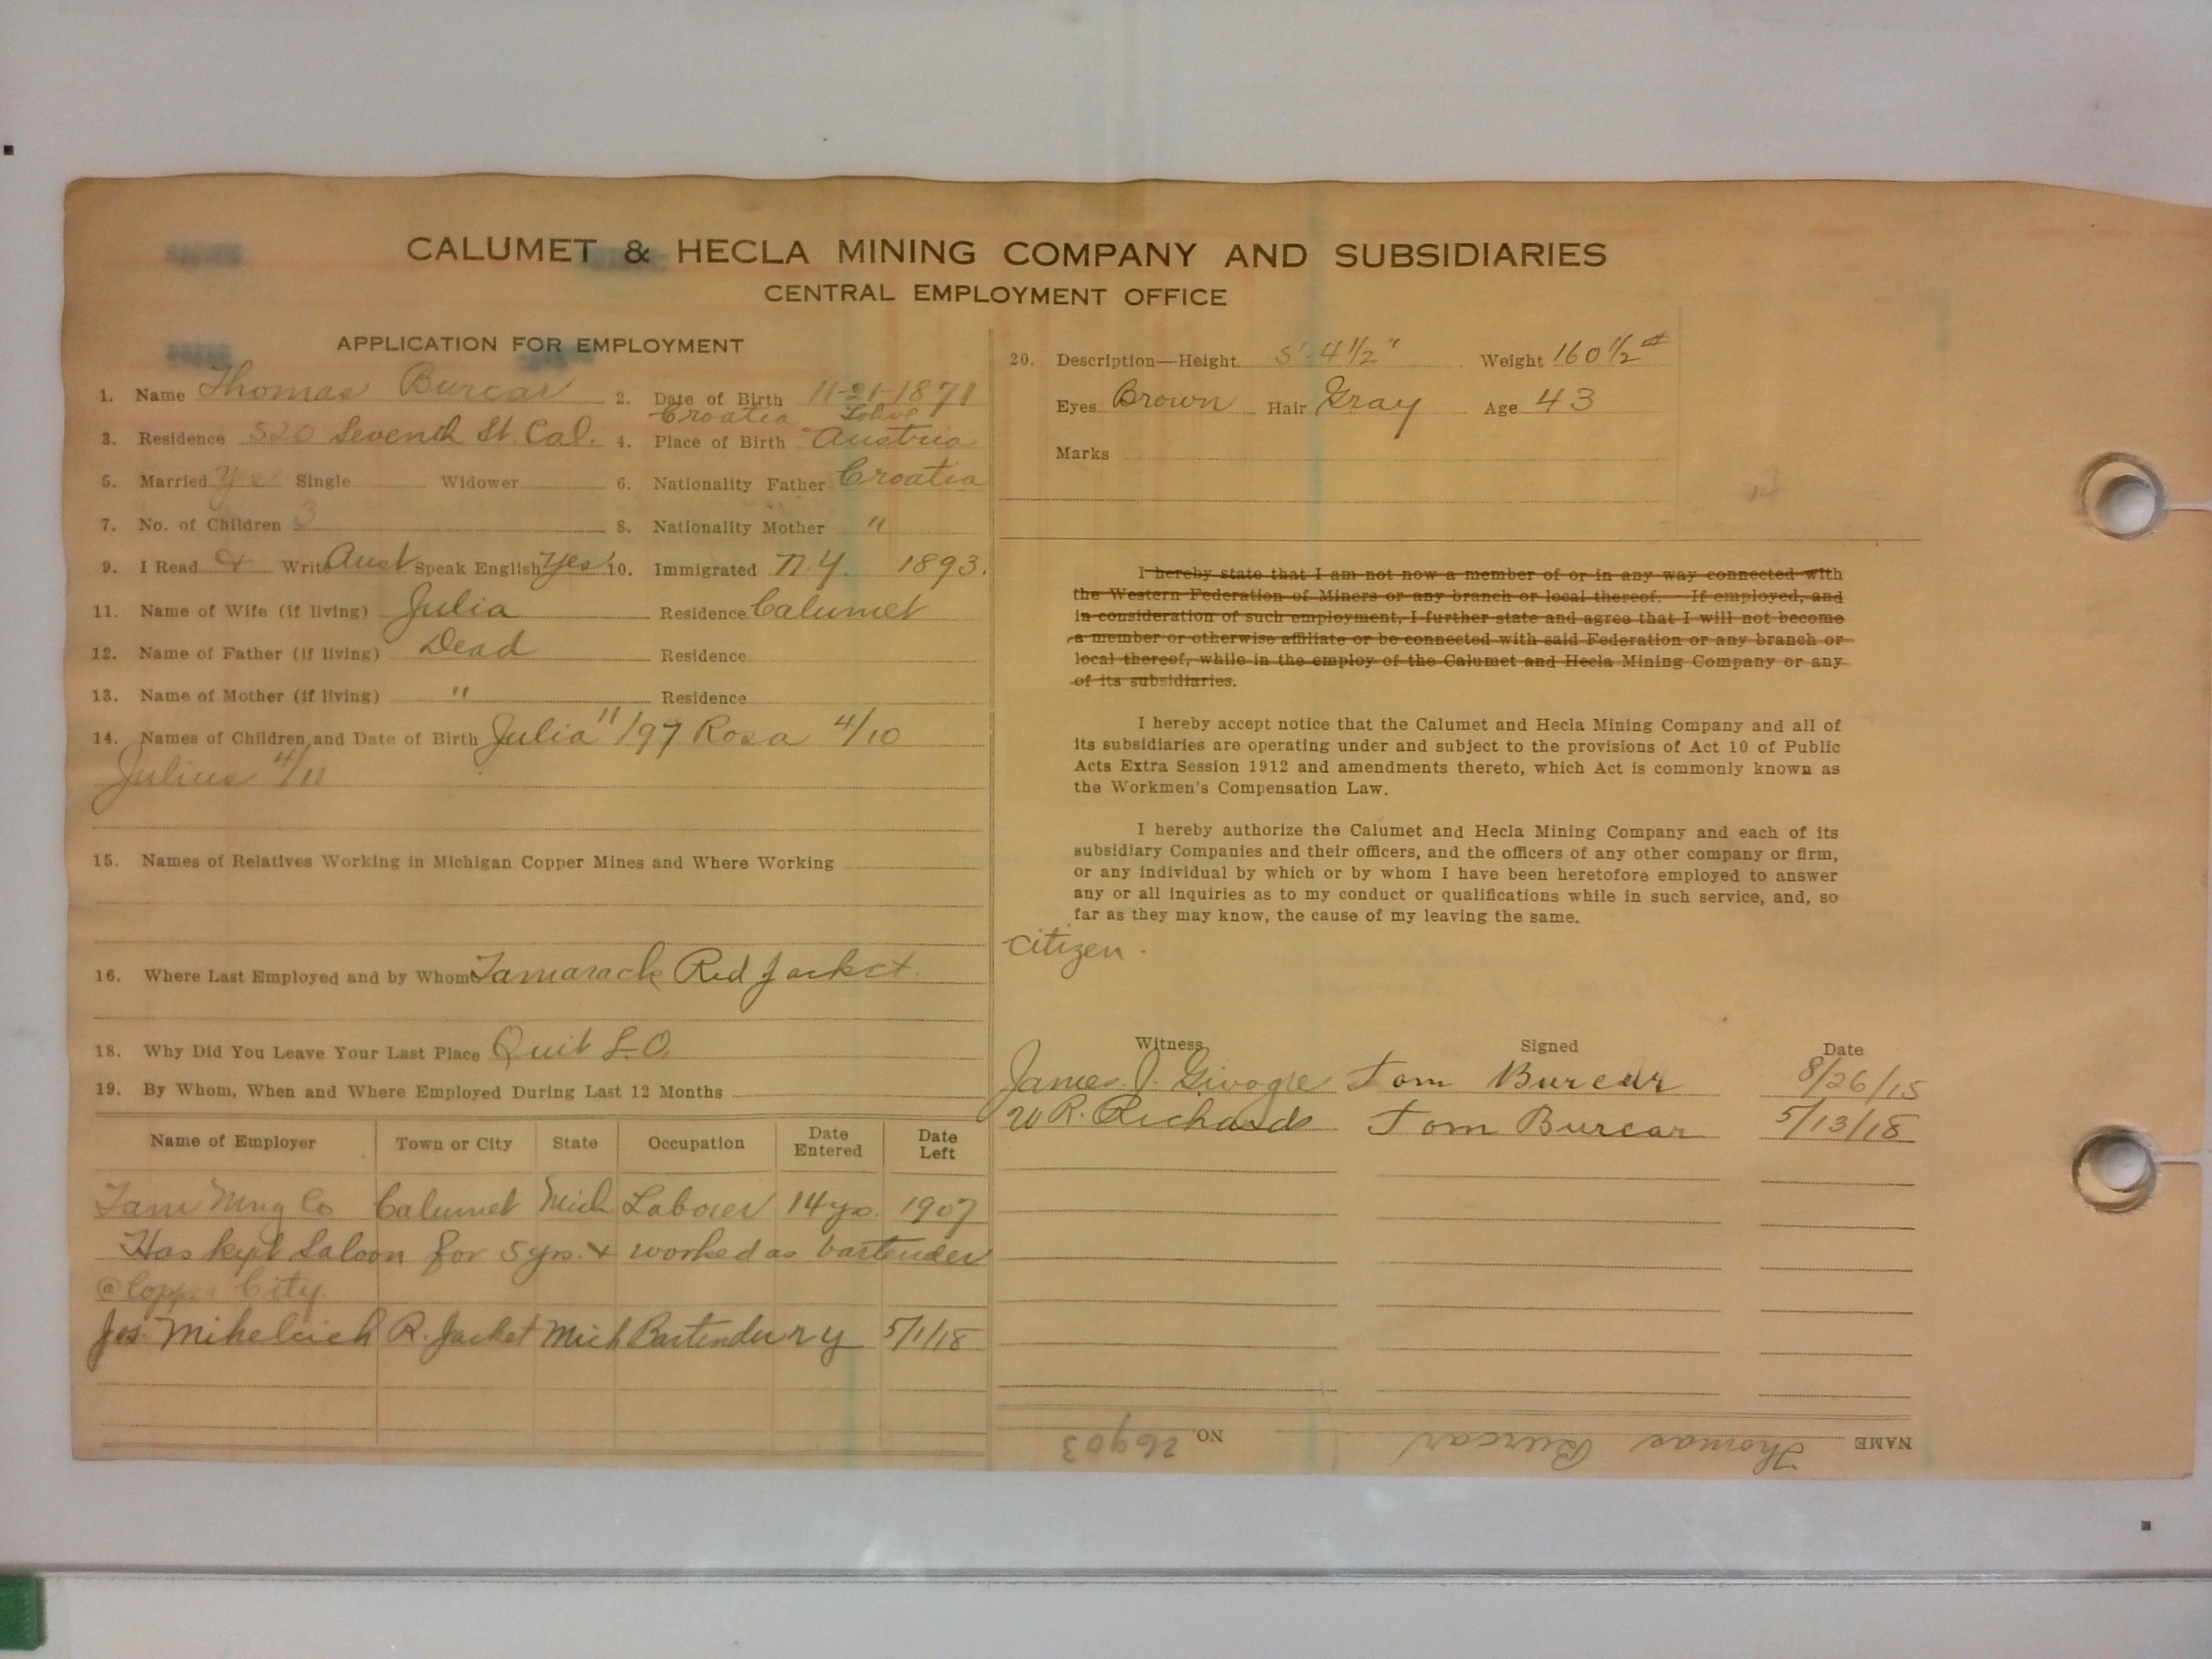 CALUMET & HECLA MINING COMPANY AND SUBSIDIARIES
CENTRAL EMPLOYMENT OFFICE
APPLICATION FOR EMPLOYMENT
1. Name Thomas Burcar 2. Date of Birth 11-21-1871
3. Residence 520 Seventh St. Cal. 4. Place of Birth Croatia Austria
5. Married Yes Single Widower 6. Nationality Father Croatia
7. No. of Children 3 8. Nationality Mother "
9. I Read & Write Aust Speak English Yes 10. Immigrated N.Y. 1893.
11. Name of Wife (if living) Julia Residence Calumet
12. Name of Father (if living) Dead Residence
13. Name of Mother (if living) " Residence
14. Names of Children and Date of Birth Julia 11/97 Rosa 4/10
Julius 4/11
15. Names of Relatives Working in Michigan Copper Mines and Where Working
16. Where Last Employed and by Whom Tamarack Red Jacket.
18. Why Did You Leave Your Last Place Quit S.O.
19. By Whom, When and Where Employed During Last 12 Months
Name of Employer Town or City State Occupation Date Entered Date Left
Tam Mng Co Calumet Mich Laborer 14 yrs. 1907
Has kept Saloon for 5 yrs. & worked as bartender
@ Copper City.
Jos. Mihelcich R. Jacket Mich Bartender 2 y 5/1/18
20. Description—Height 5'-4 1/2" Weight 160 1/2 #
Eyes Brown Hair Gray Age 43
Marks
I hereby state that I am not now a member of or in any way connected with
the Western Federation of Miners or any branch or local thereof. If employed, and
in consideration of such employment, I further state and agree that I will not become
a member or otherwise affiliate or be connected with said Federation or any branch or
local thereof, while in the employ of the Calumet and Hecla Mining Company or any
of its subsidiaries.
I hereby accept notice that the Calumet and Hecla Mining Company and all of
its subsidiaries are operating under and subject to the provisions of Act 10 of Public
Acts Extra Session 1912 and amendments thereto, which Act is commonly known as
the Workmen's Compensation Law.
I hereby authorize the Calumet and Hecla Mining Company and each of its
subsidiary Companies and their officers, and the officers of any other company or firm,
or any individual by which or by whom I have been heretofore employed to answer
any or all inquiries as to my conduct or qualifications while in such service, and, so
far as they may know, the cause of my leaving the same.
citizen.
Witness Signed Date
James J. Tom Burcar 8/26/15
W R. Richards Tom Burcar 5/13/18
NAME Thomas Burcar NO. 26903